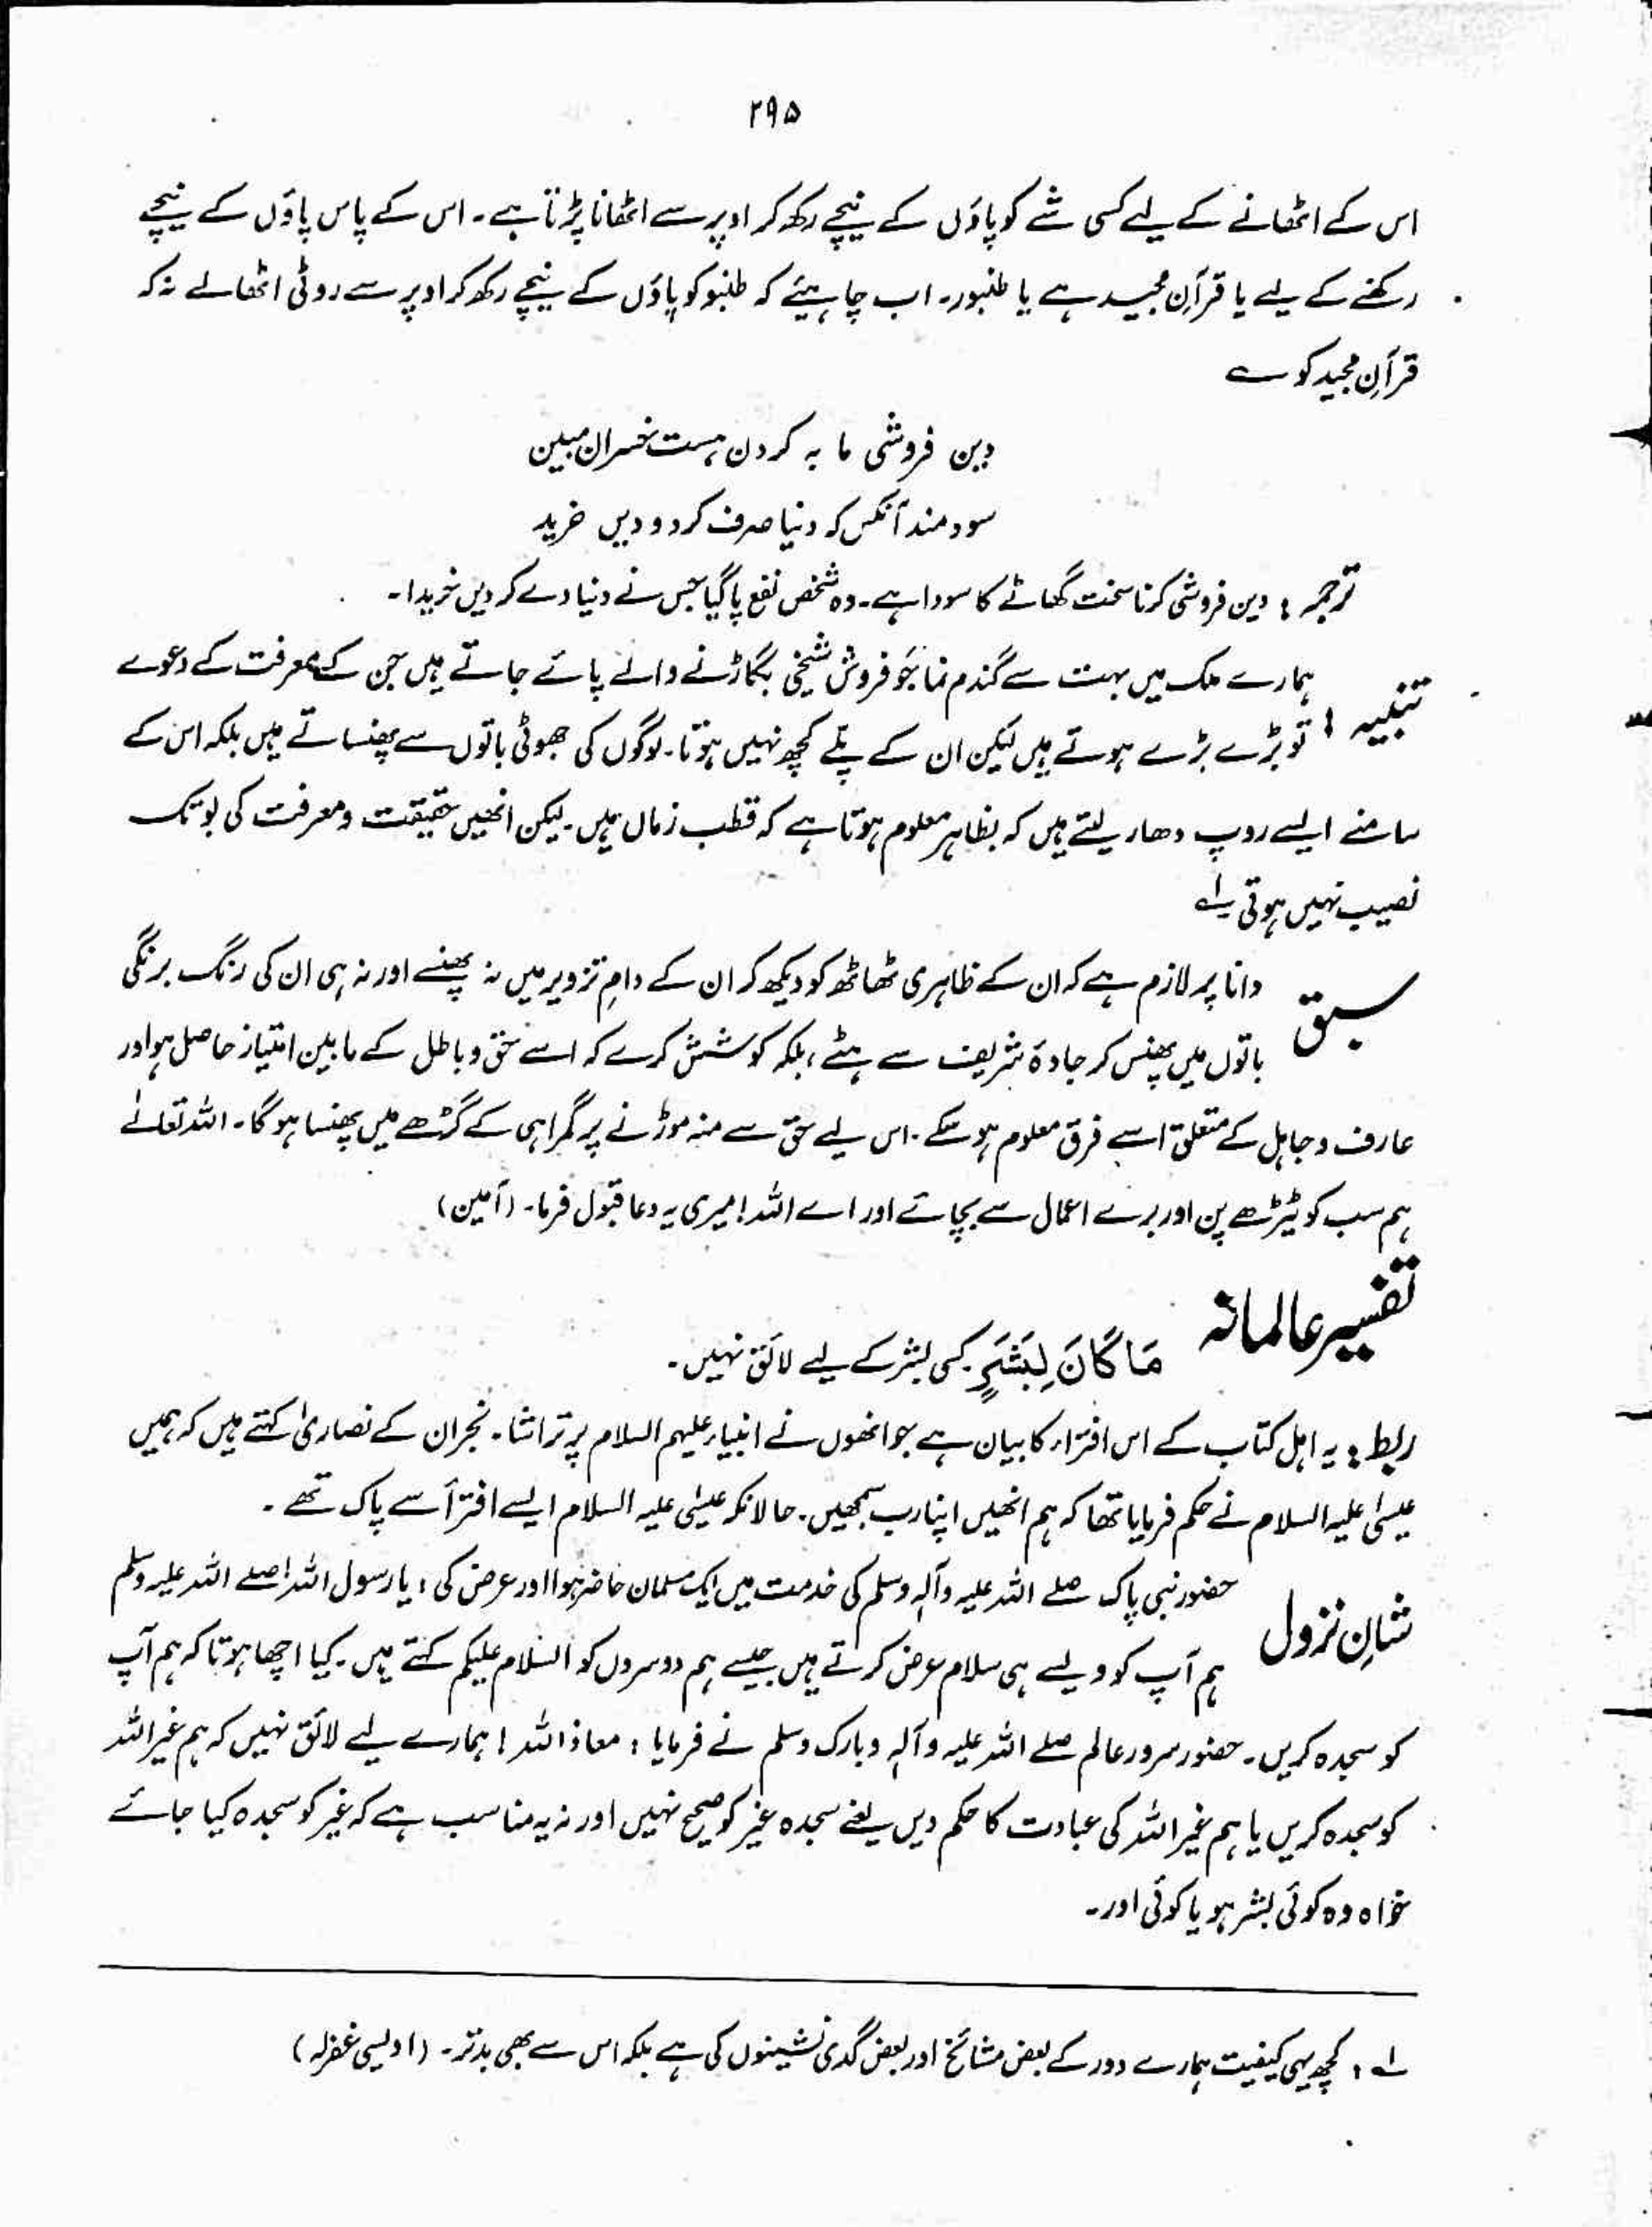 ۲۹۵
اس کے اٹھانے کے لیے کسی شے کو پاؤں کے نیچے رکھ کر اوپر سے اٹھانا پڑتا ہے۔ اس کے پاس پاؤں کے نیچے
رکھنے کے لیے یا قرآنِ مجید ہے یا طنبور۔ اب چاہیئے کہ طنبو کو پاؤں کے نیچے رکھ کر اوپر سے روٹی اٹھالے نہ کہ
قرآنِ مجید کو ؎
دین فروشی ما بہ کردن ہست خسران مبین
سود مند آنکس کہ دنیا صرف کرد و دیں خرید
ترجمہ : دین فروشی کرنا سخت گھاٹے کا سودا ہے۔ وہ شخص نفع پا گیا جس نے دنیا دے کر دیں خریدا۔
تنبیہ : ہمارے ملک میں بہت سے گندم نما جَو فروش شیخی بگاڑنے والے پائے جاتے ہیں جن کے معرفت کے دعوے
تو بڑے بڑے ہوتے ہیں لیکن ان کے پلّے کچھ نہیں ہوتا۔ لوگوں کی جھوٹی باتوں سے پھنساتے ہیں بلکہ اس کے
سامنے ایسے روپ دھار لیتے ہیں کہ بظاہر معلوم ہوتا ہے کہ قطب زماں ہیں۔ لیکن انھیں حقیقت و معرفت کی بو تک
نصیب نہیں ہوتی۔ ؎۱
سبق دانا پر لازم ہے کہ ان کے ظاہری ٹھاٹھ کو دیکھ کر ان کے دامِ تزویر میں نہ پھنسے اور نہ ہی ان کی رنگ برنگی
باتوں میں پھنس کر جادۂ شریف سے ہٹے، بلکہ کوشش کرے کہ اسے حق و باطل کے مابین امتیاز حاصل ہو اور
عارف و جاہل کے متعلق اسے فرق معلوم ہو سکے۔ اس لیے حق سے منہ موڑنے پر گمراہی کے گڑھے میں پھنسا ہو گا۔ اللہ تعالےٰ
ہم سب کو ٹیڑھے پن اور برے اعمال سے بچائے اور اے اللہ! میری یہ دعا قبول فرما۔ (آمین)
تفسیر عالمانہ مَا کَانَ لِبَشَرٍ کسی بشر کے لیے لائق نہیں۔
ربط : یہ اہل کتاب کے اس افتراء کا بیان ہے جو انھوں نے انبیاء علیہم السلام پر تراشا۔ نجران کے نصاریٰ کہتے ہیں کہ ہمیں
عیسیٰ علیہ السلام نے حکم فرمایا تھا کہ ہم انھیں اپنا رب سمجھیں۔ حالانکہ عیسٰی علیہ السلام ایسے افترأ سے پاک تھے۔
شانِ نزول حضور نبی پاک صلے اللہ علیہ وآلہٖ وسلم کی خدمت میں ایک مسلمان حاضر ہوا اور عرض کی : یا رسول اللہ! صلے اللہ علیہ وسلم
ہم آپ کو ویسے ہی سلام عرض کرتے ہیں جیسے ہم دوسروں کو السلام علیکم کہتے ہیں۔ کیا اچھا ہوتا کہ ہم آپ
کو سجدہ کریں۔ حضور سرور عالم صلے اللہ علیہ وآلہٖ وبارک وسلم نے فرمایا : معاذ اللہ! ہمارے لیے لائق نہیں کہ ہم غیر اللہ
کو سجدہ کریں یا ہم غیر اللہ کی عبادت کا حکم دیں یعنے سجدہ غیر کو صحیح نہیں اور نہ یہ مناسب ہے کہ غیر کو سجدہ کیا جائے
خواہ وہ کوئی بشر ہو یا کوئی اور۔
؎۱ : کچھ یہی کیفیت ہمارے دور کے بعض مشائخ اور بعض گدی نشینوں کی ہے بلکہ اس سے بھی بدتر۔ (اویسی غفرلہ)